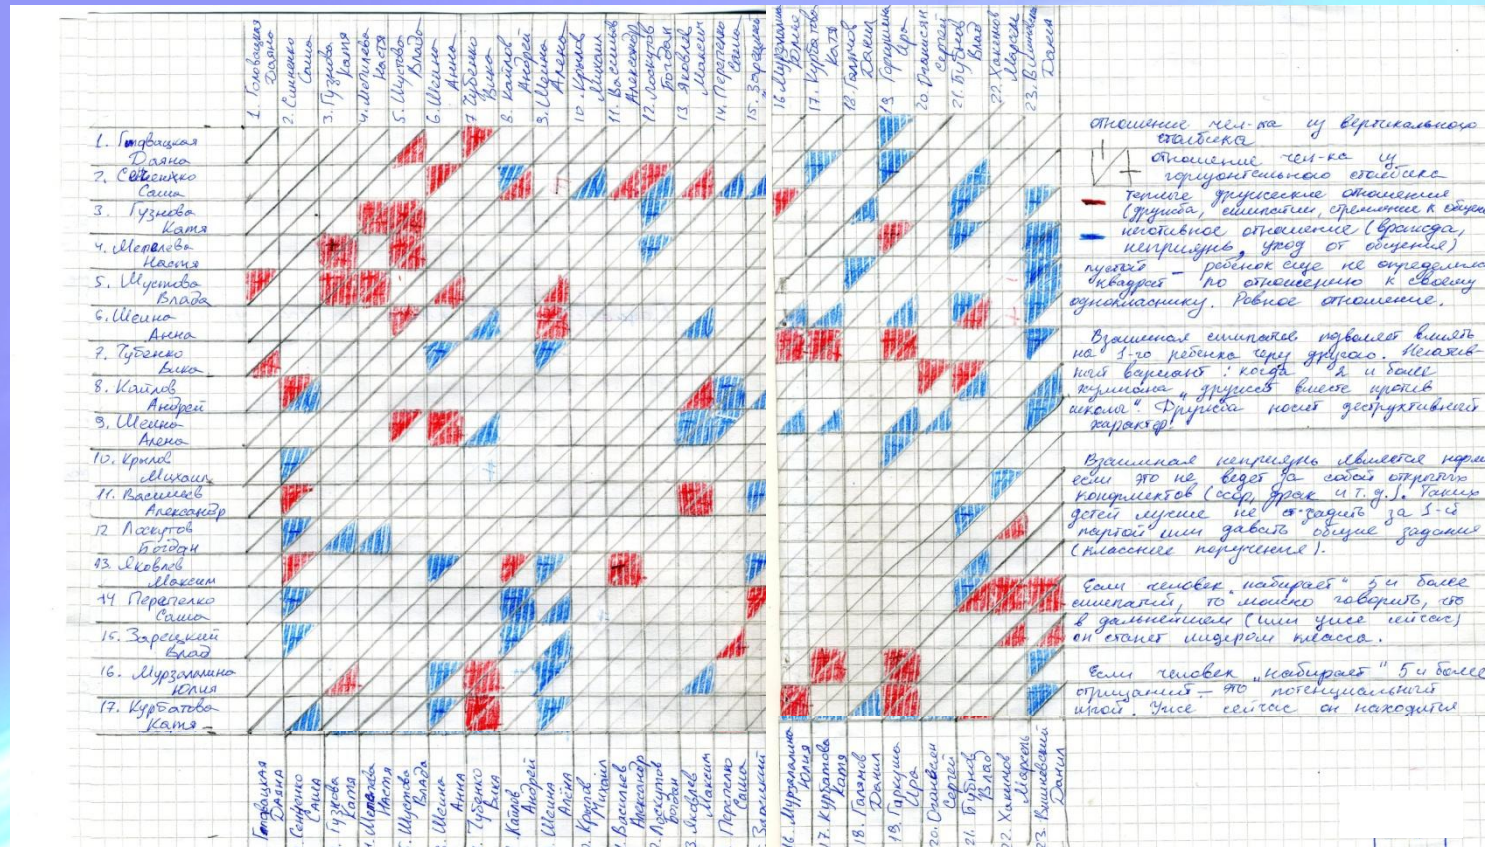 1. Головацкая Даяна
2. Сениенко Саша
3. Гузнова Катя
4. Мепелева Настя
5. Шустова Влада
6. Шеина Анна
7. Чубенко Вика
8. Кайлов Андрей
9. Шеина Алена
10. Крылов Михаил
11. Васильев Александр
12. Лоскутов Богдан
13. Яковлев Максим
14. Перепелко Саша
16. Мурзапалина Юлия
17. Курбатова Катя
18. Данил
19. Гаркуша Ира
20. Сергей
21. Бубнов Влад
22. Марсель
23. Данил
1. Головацкая
Даяна
2. Саша
3. Гузнова
Катя
4. Мепелева
Настя
5. Шустова
Влада
6. Шеина
Анна
7. Чубенко
Вика
8. Кайлов
Андрей
9. Шеина
Алена
10. Крылов
Михаил
11. Васильев
Александр
12 Лоскутов
Богдан
13. Яковлев
Максим
14 Перепелко
Саша
15. Зарецкий
Влад
16. Мурзапалина
Юлия
17. Курбатова
Катя
отношение чел-ка из вертикального
столбика
отношение чел-ка из
горизонтального столбика
- теплые дружеские отношения
(дружба, симпатии, стремление к
- негативное отношение (вражда,
неприязнь, уход от общения)
пустой — ребенок еще не определился
квадрат по отношению к своему
однокласнику. Ровное отношение.
Взаимная симпатия позволяет влиять
на 1-го ребенка через другого. Негатив-
ный вариант: когда 2 и более
хулигана „дружат вместе против
школы". Дружба носит деструктивный
характер.
Взаимная неприязнь является
если это не ведет за собой открытых
конфликтов (ссор, драк и т.д.). Таких
детей лучше не сажать за 1-й
партой или давать общие задания
(классные поручения).
Если человек „набирает" 5 и более
симпатий, то можно говорить, что
в дальнейшем (или уже сейчас)
он станет лидером класса.
Если человек „набирает" 5 и более
отрицаний — это потенциальный
изгой. Уже сейчас он находится
Головацкая Даяна
Сениенко Саша
Гузнова Катя
Настя
Шустова Влада
Шеина Анна
Чубенко Вика
Кайлов Андрей
Шеина Алёна
Крылов Михаил
Васильев Александр
Лоскутов Богдан
Яковлев Максим
Перепелко Саша
Зарецкий
16. Мурзапалина Юлия
17. Курбатова Катя
18. Данил
19. Гаркуша Ира
20. Сергей
21. Бубнов Влад
22. Марсель
23. Вишневский Данил